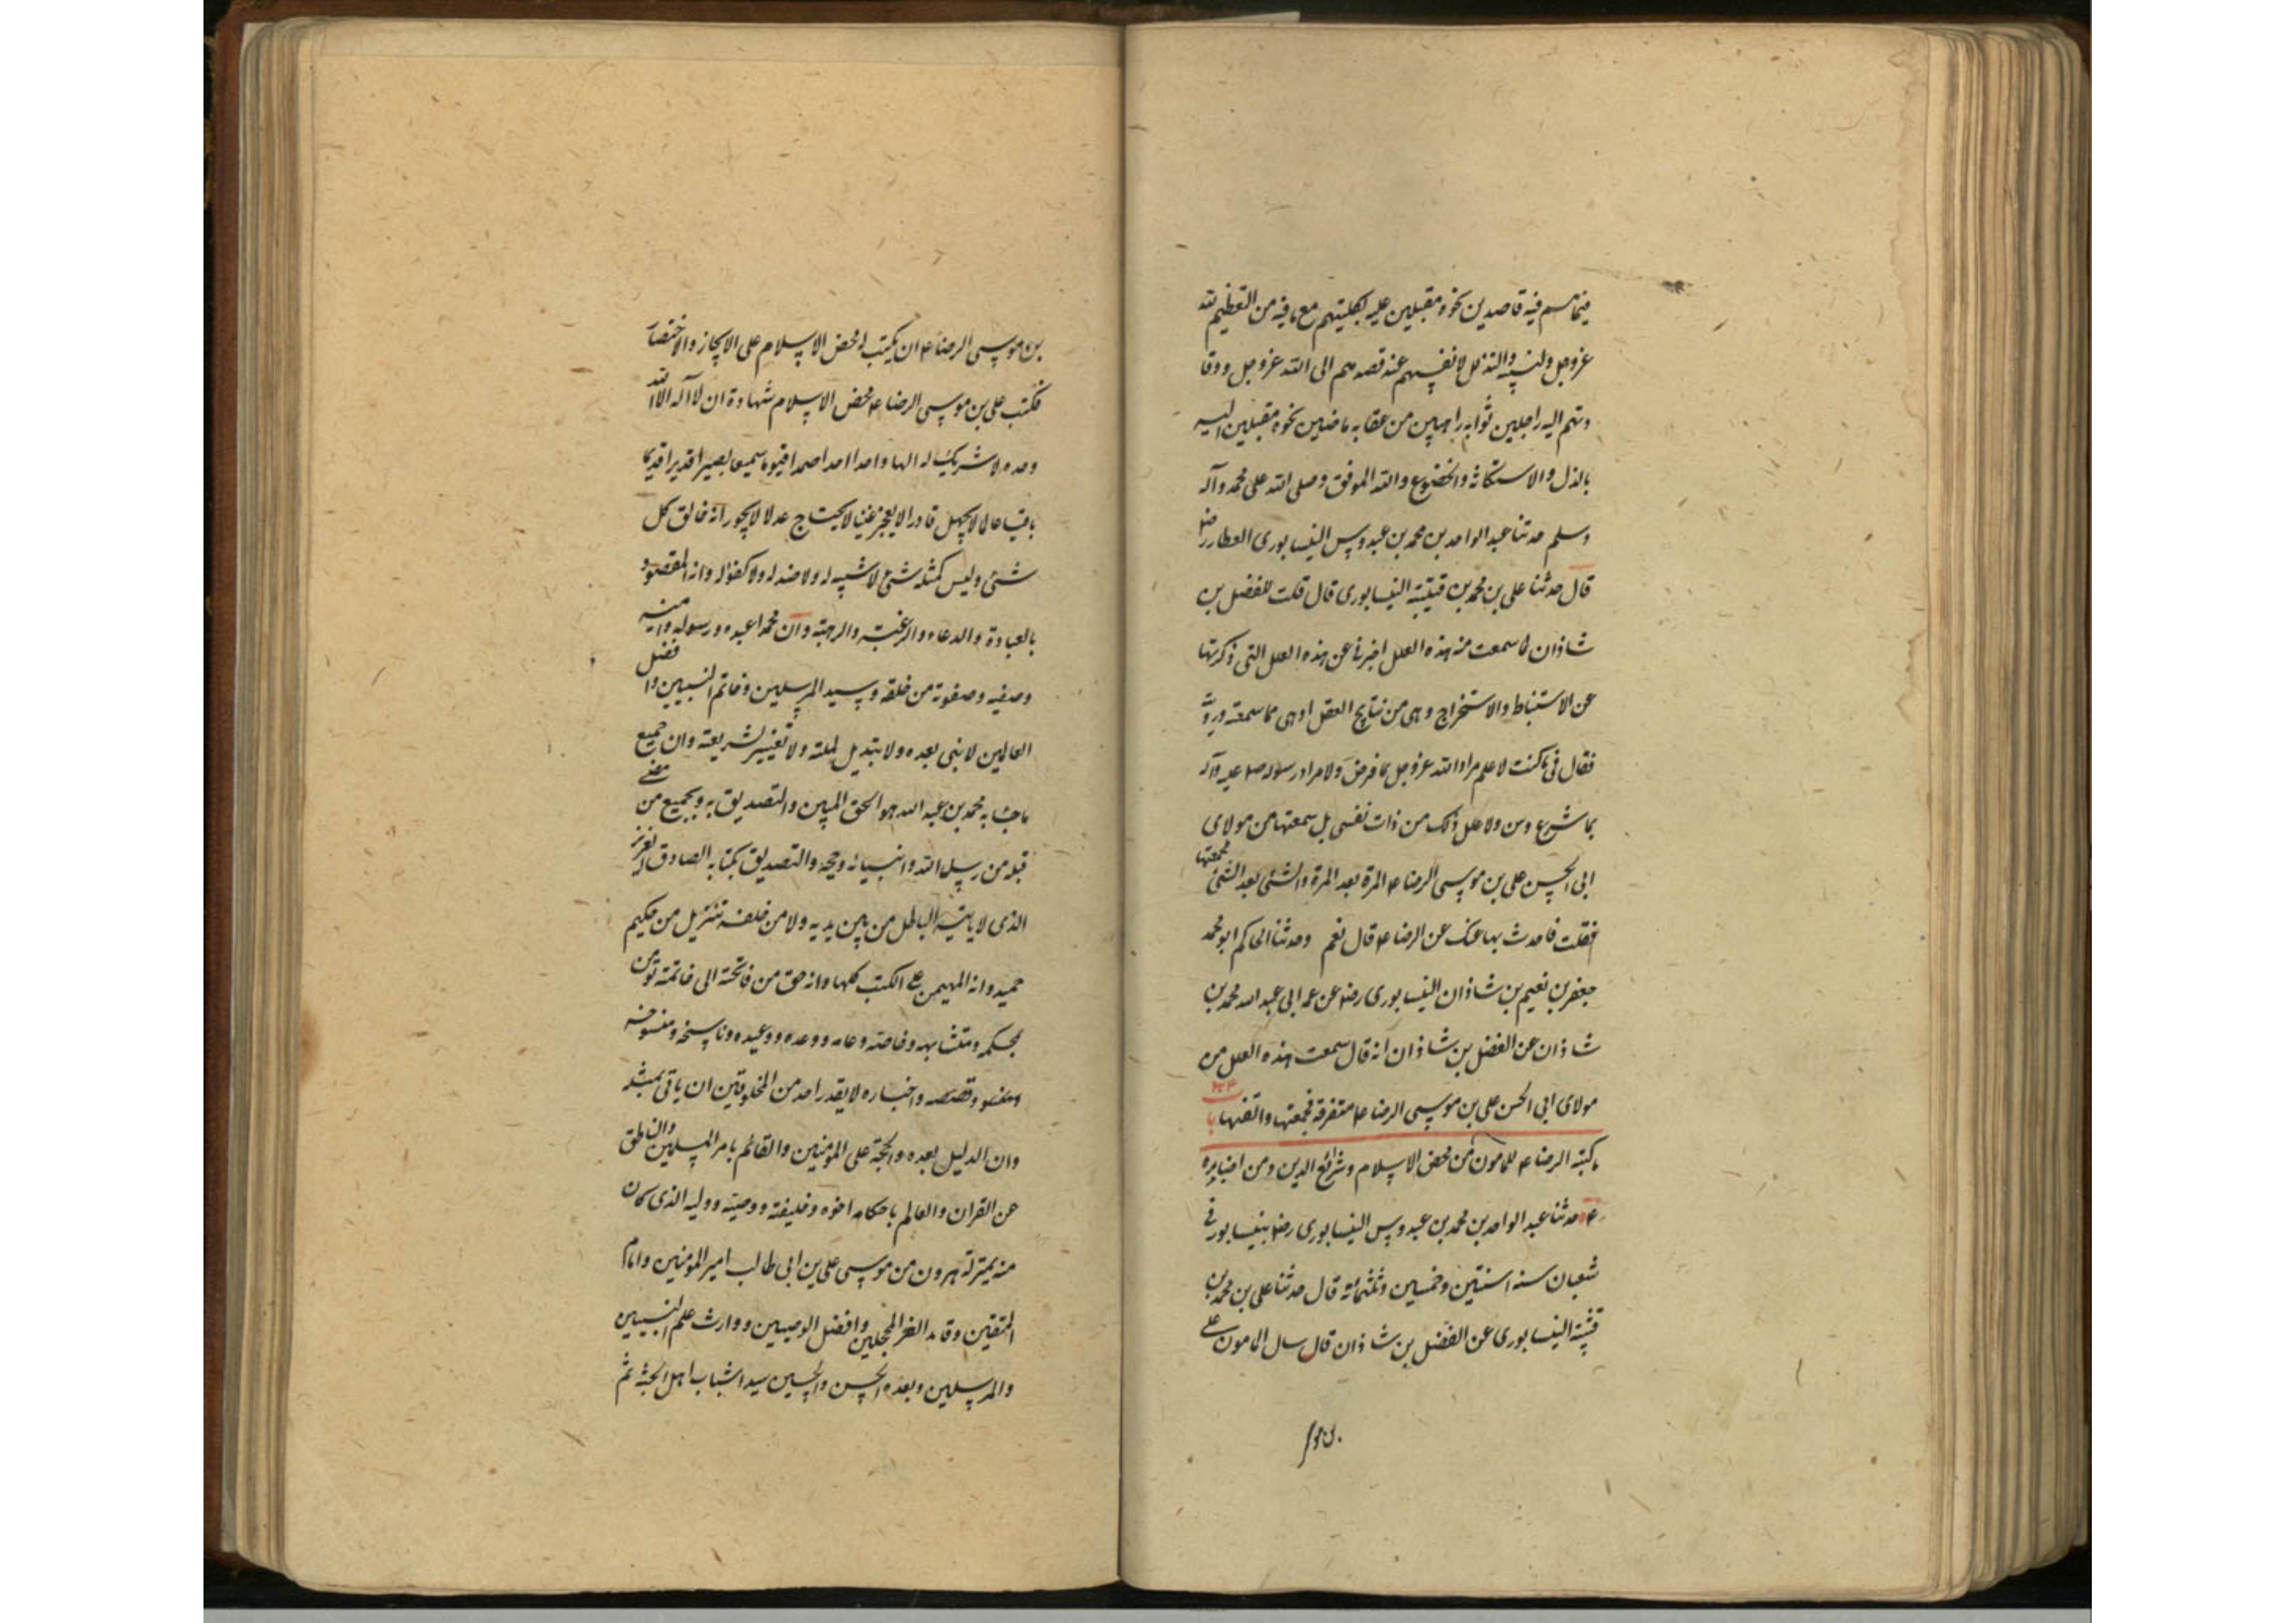 فيما هم فيه قاصدين نحوه مقبلين عليه بكليتهم مع ما فيه من التعظيم لله
عز وجل ولنبيه والتذلل لانفسهم عند قصدهم الى الله عز وجل ووفا
دتهم اليه راجين ثوابه راهبين من عقابه ماضين نحوه مقبلين اليه
بالذل والاستكانة والخضوع والله الموفق وصلى الله على محمد وآله
وسلم حدثنا عبد الواحد بن محمد بن عبدوس النيسابورى العطار رض
قال حدثنا على بن محمد بن قتيبة النيسابورى قال قلت للفضل بن
شاذان لما سمعت منه هذه العلل اخبرنى عن هذه العلل التى ذكرتها
عن الاستنباط والاستخراج وهى من نتايج العقل او هى مما سمعته ورويته
فقال لى ما كنت لاعلم مراد الله عز وجل بما فرض ولا مراد رسوله ص عليه وآله
بما شرع وسن ولا علل ذلك من ذات نفسى بل سمعتها من مولاى
ابى الحسن على بن موسى الرضا ع المرة بعد المرة والشئ بعد الشئ فجمعتها
فقلت فاحدث بها عنك عن الرضا ع قال نعم وحدثنا الحاكم ابو محمد
جعفر بن نعيم بن شاذان النيسابورى رض عن عمه ابى عبد الله محمد بن
شاذان عن الفضل بن شاذان انه قال سمعت هذه العلل من
مولاى ابى الحسن على بن موسى الرضا ع متفرقة فجمعتها والفتها با
ما كتبه الرضا ع للمامون من محض الاسلام وشرائع الدين ومن اخباره
ع حدثنا عبد الواحد بن محمد بن عبدوس النيسابورى رض بنيسابور فى
شعبان سنه اسنتين وخمسين وثلثمائة قال حدثنا على بن محمد بن
قتيبة النيسابورى عن الفضل بن شاذان قال سال المامون على
بن مو
بن موسى الرضا ع ان يكتب له محض الاسلام على الايجاز والاختصار
فكتب على بن موسى الرضا ع محض الاسلام شهادة ان لا آله الا الله
وحده لا شريك له الها واحدا احدا صمدا قيوما سميعا بصيرا قديرا قديما
باقيا عالما لا يجهل قادرا لا يعجز غنيا لا يحتاج عدلا لا يجور انه خالق كل
شئ وليس كمثله شئ لا شبيه له ولا ضد له ولا كفؤ له وانه المقصود
بالعبادة والدعاء والرغبة والرهبة وان محمدا عبده ورسوله وامينه
وصفيه وصفوته من خلقه وسيد المرسلين وخاتم النبيين وافضل
العالمين لا نبى بعده ولا تبديل لملته ولا تغيير لشريعته وان جميع
ما جاء به محمد بن عبد الله هو الحق المبين والتصديق به وبجميع من مضى
قبله من رسل الله وانبيائه وحججه والتصديق بكتابه الصادق العزيز
الذى لا ياتيه الباطل من بين يديه ولا من خلفه تنزيل من حكيم
حميد وانه المهيمن على الكتب كلها وانه حق من فاتحته الى خاتمته نؤمن
بمحكمه ومتشابهه وخاصه وعامه ووعده ووعيده وناسخه ومنسوخه
وقصصه واخباره لا يقدر احد من المخلوقين ان ياتى بمثله
وان الدليل بعده والحجة على المؤمنين والقائم بامر المسلمين والناطق
عن القران والعالم باحكامه اخوه وخليفته ووصيه ووليه الذى كان
منه بمنزلة هرون من موسى على بن ابى طالب امير المؤمنين وامام
المتقين وقائد الغر المحجلين وافضل الوصيين ووارث علم النبيين
والمرسلين وبعده الحسن والحسين سيدا شباب اهل الجنة ثم